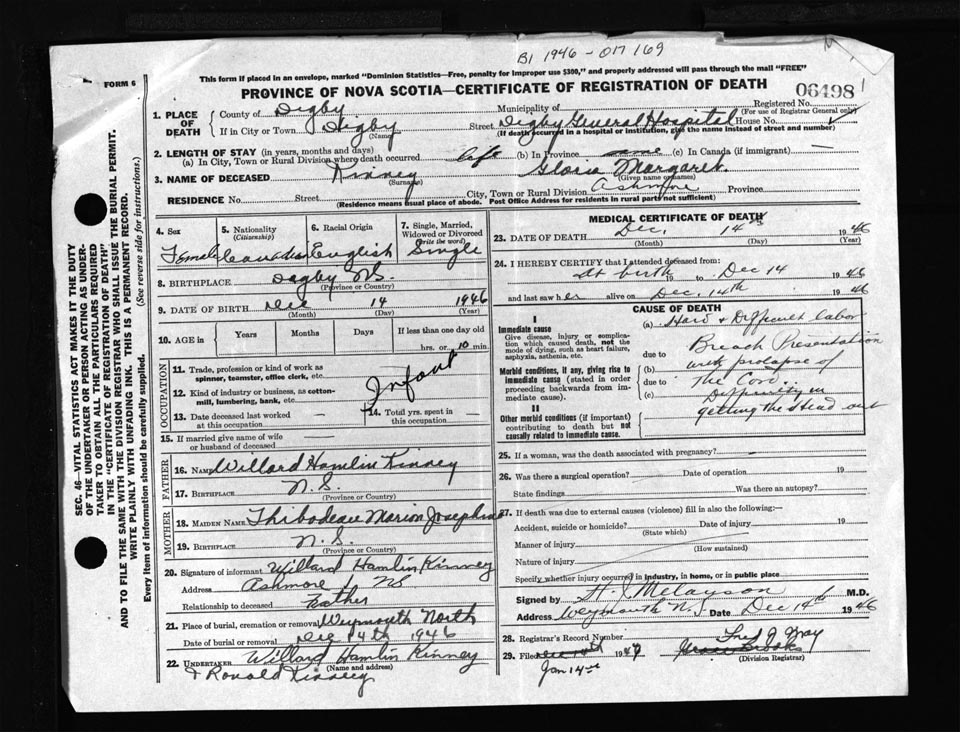 B1 1946 - 017169
This form if placed in an envelope, marked "Dominion Statistics—Free, penalty for improper use $300," and properly addressed will pass through the mail "FREE"
FORM 6
PROVINCE OF NOVA SCOTIA—CERTIFICATE OF REGISTRATION OF DEATH
06498
Registered No.
(For use of Registrar General only)
1. PLACE OF DEATH
County of Digby Municipality of
If in City or Town Digby Street Digby General Hospital House No.
(Name) (If death occurred in a hospital or institution, give the name instead of street and number)
2. LENGTH OF STAY (in years, months and days)
(a) In City, Town or Rural Division where death occurred life (b) In Province same (c) In Canada (if immigrant) —
3. NAME OF DECEASED Kinney Gloria Margaret
(Surname) (Given name or names)
RESIDENCE No. Street City, Town or Rural Division Ashmore Province
(Residence means usual place of abode. Post Office Address for residents in rural parts not sufficient)
4. Sex Female
5. Nationality (Citizenship) Canadian
6. Racial Origin English
7. Single, Married, Widowed or Divorced (Write the word) Single
8. BIRTHPLACE Digby N.S.
(Province or Country)
9. DATE OF BIRTH Dec 14 1946
(Month) (Day) (Year)
10. AGE in Years Months Days If less than one day old
hrs. or 10 min.
OCCUPATION
11. Trade, profession or kind of work as spinner, teamster, office clerk, etc.
Infant
12. Kind of industry or business, as cotton-mill, lumbering, bank, etc.
13. Date deceased last worked at this occupation —
14. Total yrs. spent in this occupation —
15. If married give name of wife or husband of deceased —
FATHER
16. NAME Willard Hamlin Kinney
17. BIRTHPLACE N.S.
(Province or Country)
MOTHER
18. MAIDEN NAME Thibodeau Marion Josephine
19. BIRTHPLACE N.S.
(Province or Country)
20. Signature of informant Willard Hamlin Kinney
Address Ashmore NS
Relationship to deceased Father
21. Place of burial, cremation or removal Weymouth North
Date of burial or removal Dec 14th 1946
22. UNDERTAKER Willard Hamlin Kinney
(Name and address)
+ Ronald Kinney
MEDICAL CERTIFICATE OF DEATH
23. DATE OF DEATH Dec. 14th 1946
(Month) (Day) (Year)
24. I HEREBY CERTIFY that I attended deceased from:
at birth 19 to Dec 14 1946
and last saw her alive on Dec. 14th 1946
CAUSE OF DEATH
I
Immediate cause
Give disease, injury or complication which caused death, not the mode of dying, such as heart failure, asphyxia, asthenia, etc.
(a) Hard & Difficult labor
due to Breach Presentation
(b) with prolapse of
due to The Cord.
(c) Difficulty in
getting the Head out
Morbid conditions, if any, giving rise to immediate cause (stated in order proceeding backwards from immediate cause).
II
Other morbid conditions (if important) contributing to death but not causally related to immediate cause.
25. If a woman, was the death associated with pregnancy? —
26. Was there a surgical operation? Date of operation 19
State findings Was there an autopsy?
27. If death was due to external causes (violence) fill in also the following:—
Accident, suicide or homicide? Date of injury 19
(State which)
Manner of injury
(How sustained)
Nature of injury
Specify whether injury occurred in industry, in home, or in public place
Signed by M.D.
Address Weymouth N.S. Date Dec 14th 1946
28. Registrar's Record Number
Fred G. Gray
29. Filed 1947
(Division Registrar)
Jan 14th
SEC. 46—VITAL STATISTICS ACT MAKES IT THE DUTY
OF THE UNDERTAKER OR PERSON ACTING AS UNDER-
TAKER TO OBTAIN ALL THE PARTICULARS REQUIRED
IN THE "CERTIFICATE OF REGISTRATION OF DEATH"
AND TO FILE THE SAME WITH THE DIVISION REGISTRAR WHO SHALL ISSUE THE BURIAL PERMIT.
WRITE PLAINLY WITH UNFADING INK. THIS IS A PERMANENT RECORD.
Every item of information should be carefully supplied. (See reverse side for instructions.)